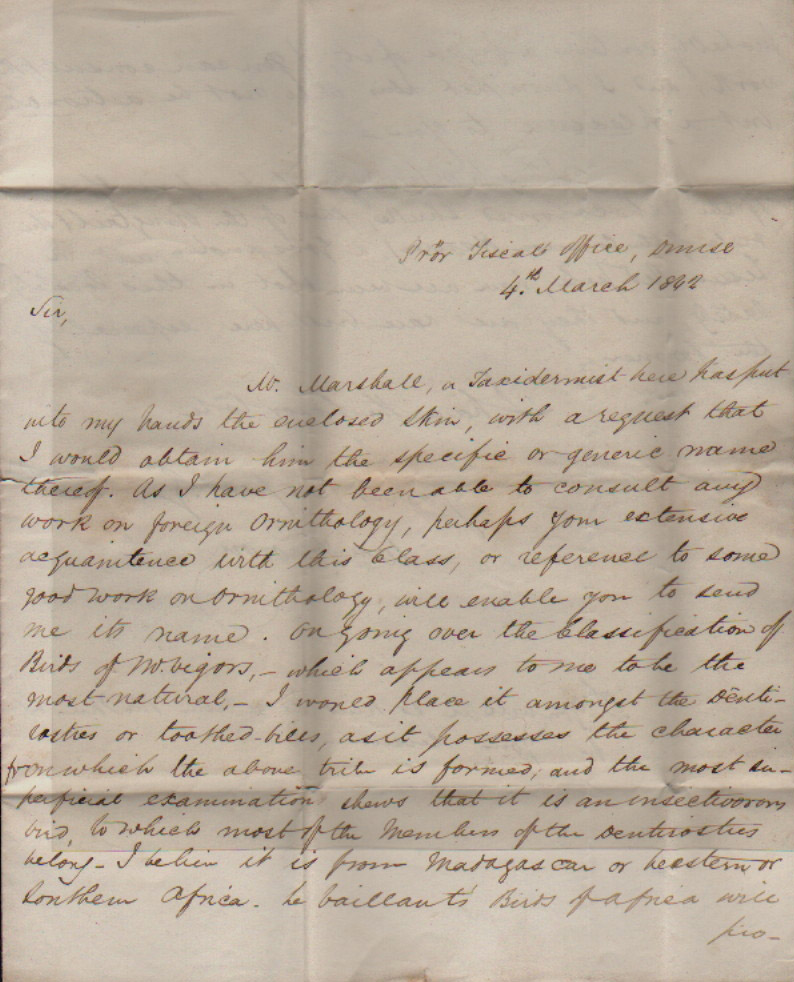 Pror Fiscal Office,
4.th March 1842
Sir,
Mr. Marshall, a Taxidermist here has put
into my hands the enclosed skin, with a request that
I would obtain him the specific or generic name
thereof. As I have not been able to consult any
work on foreign Ornithology, perhaps your extensive
acquaintence with this Class, or reference to some
good work on Ornithology, will enable you to send
me its name. On going over the Classification of
Birds of Mr. Vigors, - which appears to me to be the
most natural, - I would place it amongst the Denti-
rostres or toothed-bills, as it possesses the character
from which the above tribe is formed, and the most su-
perficial examination shews that it is an insectivorous
bird, to which most of the Members of the Dentirostres
belong - I believe it is from Madagascar or Eastern or
Southern Africa. Le Vaillant's Birds of Africa will
pro-